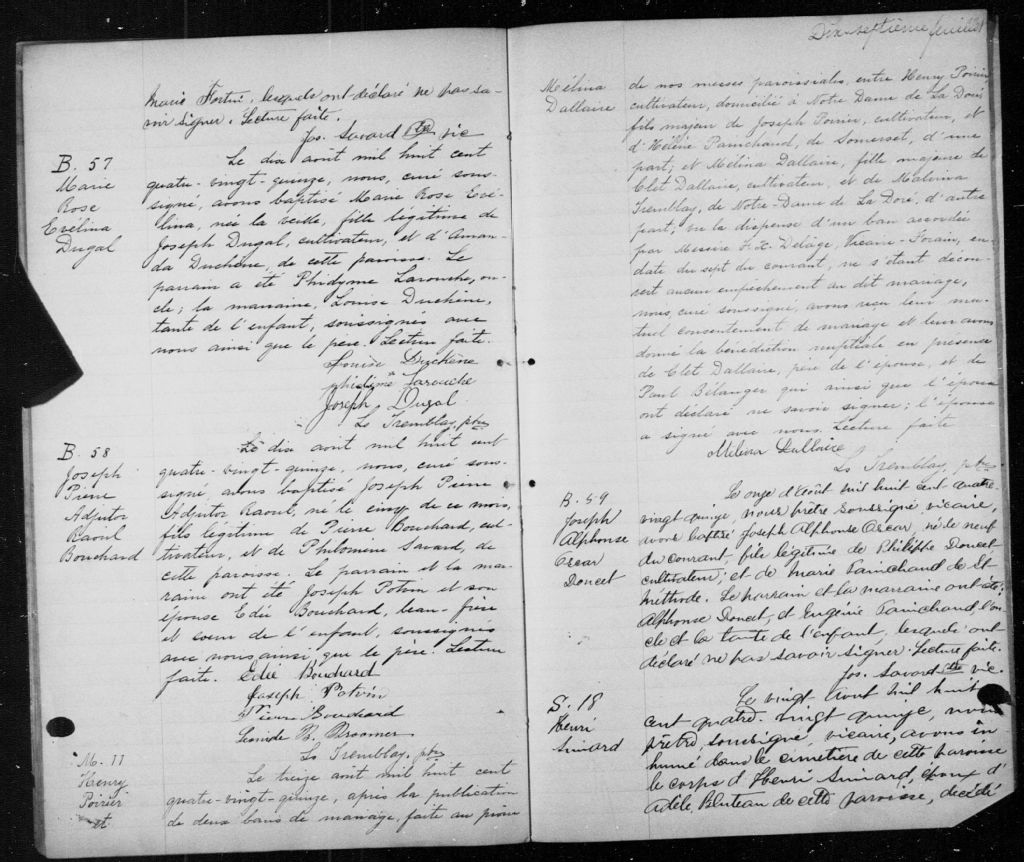 Marie Fortin, lesquels ont déclaré ne pas sa-
voir signer. Lecture faite.
Jos. Savard Ptre vic
B. 57
Marie
Rose
Evélina
Dugal
Le dix août mil huit cent
quatre-vingt-quinze, nous, curé sous-
signé, avons baptisé Marie Rose Evé-
lina, née la veille, fille légitime de
Joseph Dugal, cultivateur, et d'Aman-
da Duchène, de cette paroisse. Le
parrain a été Phidyme Larouche, on-
cle; la marraine, Louise Duchène,
tante de l'enfant, soussignés avec
nous ainsi que le père. Lecture faite.
Louise Duchène
phidime Larouche
Joseph Dugal
Ls Tremblay, ptre
B. 58
Joseph
Pierre
Adjutor
Raoul
Bouchard
Le dix août mil huit cent
quatre-vingt-quinze, nous, curé sous-
signé, avons baptisé Joseph Pierre
Adjutor Raoul, né le cinq de ce mois,
fils légitime de Pierre Bouchard, cul-
tivateur, et de Philomène Savard, de
cette paroisse. Le parrain et la mar-
raine ont été Joseph Potvin et son
épouse Edée Bouchard, beau-frère
et soeur de l'enfant, soussignés
avec nous ainsi que le père. Lecture
faite. Edée Bouchard
Joseph Potvin
Pierre Bouchard
B.
Ls Tremblay, ptre
M. 11
Henry
Poirier
et
Le treize août mil huit cent
quatre-vingt-quinze, après la publication
de deux bans de mariage, faite au prône
Dix-septième feuillet
Mélina
Dallaire
de nos messes paroissiales, entre Henry Poirier
cultivateur, domicilié à Notre Dame de La Doré
fils majeur de Joseph Poirier, cultivateur, et
d'Hélène Painchaud, de Somerset, d'une
part; et Mélina Dallaire, fille majeure de
Clet Dallaire, cultivateur, et de Malvina
Tremblay, de Notre-Dame de La Doré, d'autre
part; vu la dispense d'un ban accordée
par Messire F. X. Delâge, Vicaire-Forain, en
date du sept du courant, ne s'étant décou-
vert aucun empêchement au dit mariage,
nous, curé soussigné, avons reçu leur mu-
tuel consentement de mariage et leur avons
donné la bénédiction nuptiale en présence
de Clet Dallaire, père de l'épouse, et de
Paul Bélanger qui ainsi que l'époux
ont déclaré ne savoir signer; l'épouse
a signé avec nous. Lecture faite
Mélina Dallaire
Ls Tremblay, ptre
B. 59
Joseph
Alphonse
Oscar
Doucet
Le onze d'Août mil huit cent quatre-
vingt quinze, nous prêtre soussigné vicaire,
avons baptisé Joseph Alphonse Oscar, né le neuf
du courant, fils légitime de Philippe Doucet
cultivateur; et de Marie Painchaud de St
Méthode. Le parrain et la marraine ont été
Alphonse Doucet, et Eugénie Painchaud l'on-
cle et la tante de l'enfant, lesquels ont
déclaré ne pas savoir signer. Lecture faite.
Jos. Savard Ptre vic.
S. 18
Henri
Simard
Le vingt Août mil huit
cent quatre-vingt quinze, nous
prêtre, soussigné, vicaire, avons in-
humé dans le cimetière de cette paroisse
le corps d'Henri Simard, époux d'
Adèle Bluteau de cette paroisse, décédé